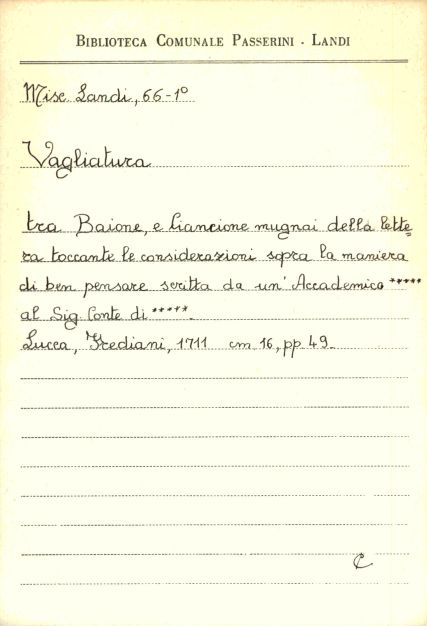 BIBLIOTECA COMUNALE PASSERINI - LANDI
Misc Landi, 66-1º
Vagliatura
tra Baione, e Ciancione mugnai della lette=
ra toccante le considerazioni sopra la maniera
di ben pensare scritta da un' Accademico *****
al Sig. Conte di *****.
Lucca, Frediani, 1711 cm 16, pp 49.
C